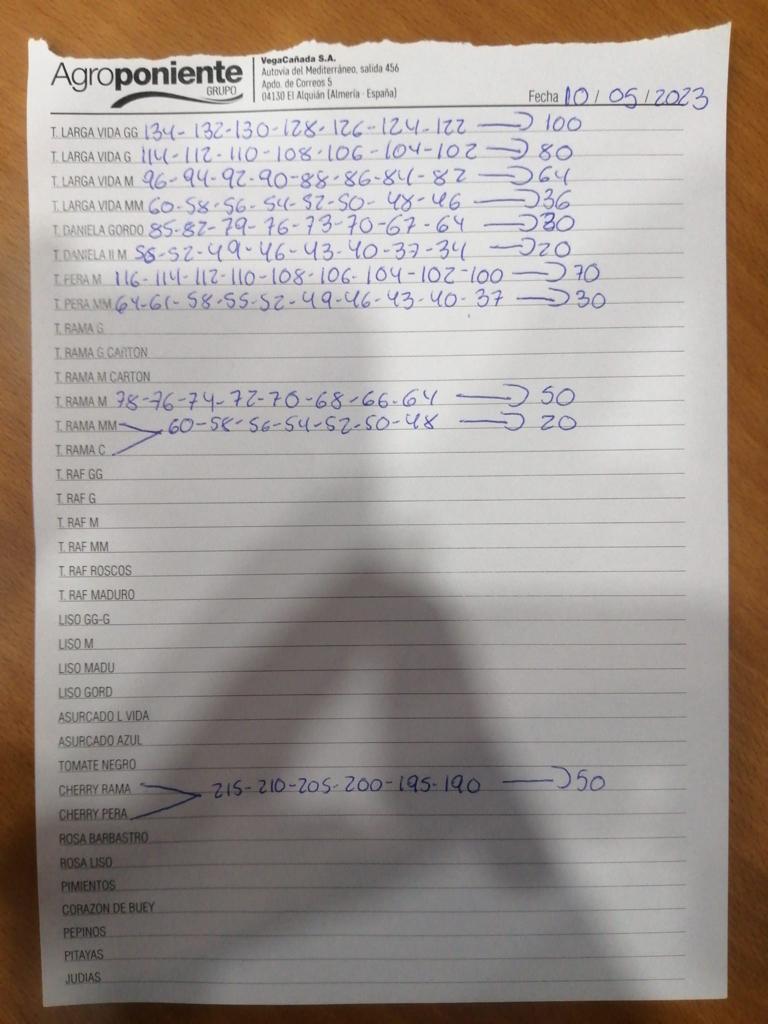 Agroponiente
GRUPO
VegaCañada S.A.
Autovía del Mediterráneo, salida 456
Apdo. de Correos 5
04130 El Alquián (Almería - España)
Fecha 10/05/2023
T. LARGA VIDA GG 134-132-130-128-126-124-122 → 100
T. LARGA VIDA G 114-112-110-108-106-104-102 → 80
T. LARGA VIDA M 96-94-92-90-88-86-84-82 → 64
T. LARGA VIDA MM 60-58-56-54-52-50-48-46 → 36
T. DANIELA GORDO 85-82-79-76-73-70-67-64 → 30
T. DANIELA II M 55-52-49-46-43-40-37-34 → 20
T. PERA M 116-114-112-110-108-106-104-102-100 → 70
T. PERA MM 64-61-58-55-52-49-46-43-40-37 → 30
T. RAMA G
T. RAMA G CARTON
T. RAMA M CARTON
T. RAMA M 78-76-74-72-70-68-66-64 → 50
T. RAMA MM 60-58-56-54-52-50-48 → 20
T. RAMA C
T. RAF GG
T. RAF G
T. RAF M
T. RAF MM
T. RAF ROSCOS
T. RAF MADURO
LISO GG-G
LISO M
LISO MADU
LISO GORD
ASURCADO L VIDA
ASURCADO AZUL
TOMATE NEGRO
CHERRY RAMA 215-210-205-200-195-190 → 50
CHERRY PERA
ROSA BARBASTRO
ROSA LISO
PIMIENTOS
CORAZON DE BUEY
PEPINOS
PITAYAS
JUDIAS